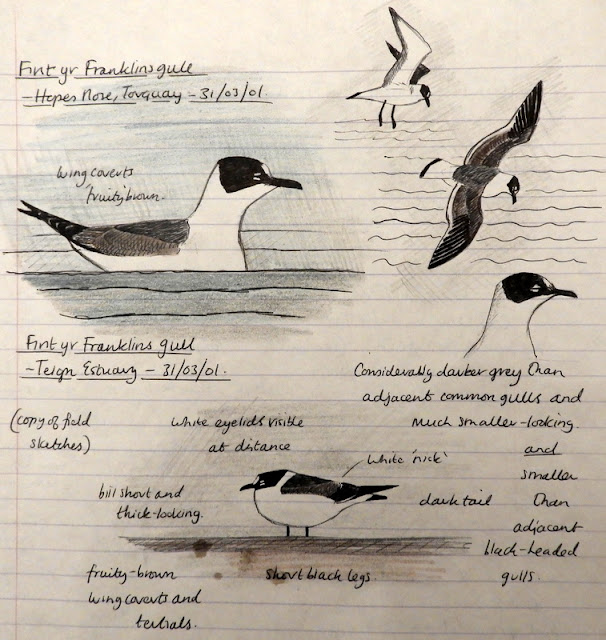 First yr Franklins gull
- Hopes Nose, Torquay - 31/03/01.
wing coverts
'fruity' brown.
First yr Franklins gull
- Teign Estuary - 31/03/01.
(copy of field
sketches)
white eyelids visible
at distance
Considerably darker grey than
adjacent common gulls and
much smaller-looking.
and
smaller
than
adjacent
black-headed
gulls.
white 'nick'
bill short and
thick-looking.
dark tail
fruity-brown
wing coverts and
tertials.
short black legs.